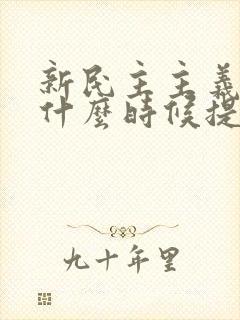 新民主主義
什麼時候提
九十年里